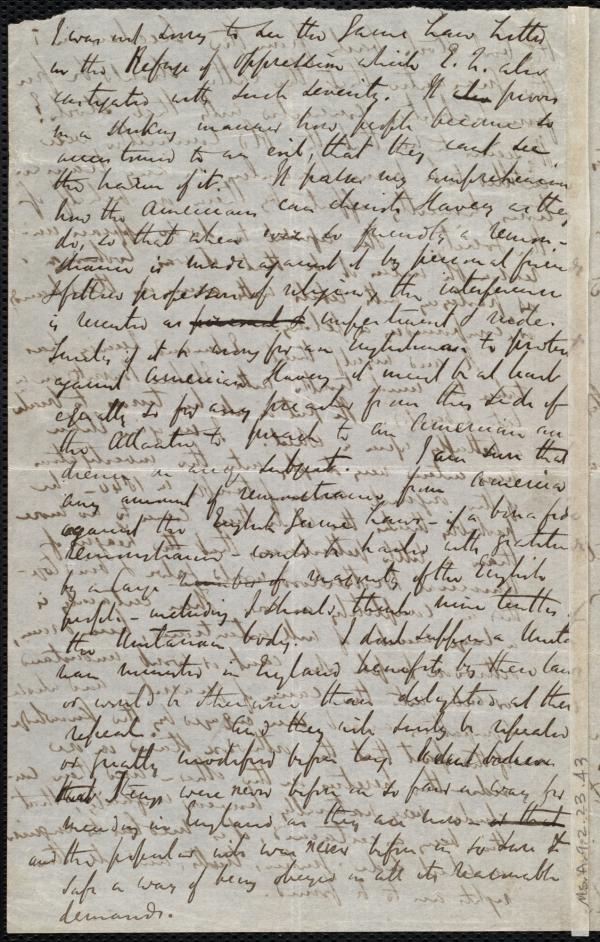 I was not sorry to see the Game Law letter
in the Refuge of Oppression which E. Q. also
castigated with such severity. It proves
in a striking manner how people become so
accustomed to an evil, that they cant see
the harm of it. It passes my comprehension
how the Americans can cherish slavery as they
do, so that when so friendly a remon-
strance is made against it by personal friends
& fellow professors of religion, the interference
is resented as impertinent & rude.
Surely if it is wrong for an Englishman to protest
against American Slavery it must be at least
equally so for any preacher from this side of
the Atlantic to preach to an American au
dience on any subject. I am sure that
any amount of remonstrances from America
against the English Game Laws - if a bona fide
remonstrance - would be hailed with gratitude
by a large majority of the English
people - including I should think nine tenths of
the Unitarian body. I dont suppose a Unita
rian minister in England benefits by these laws
or would be otherwise than delighted at their
repeal. And they will surely be repealed
or greatly modified before long.
Things were never before in so fair a way for
mending in England as they are now
and the popular will was never before in so sure &
safe a way of being obeyed in all its reasonable
demands.
Ms. A. 9. 2. 23. 43